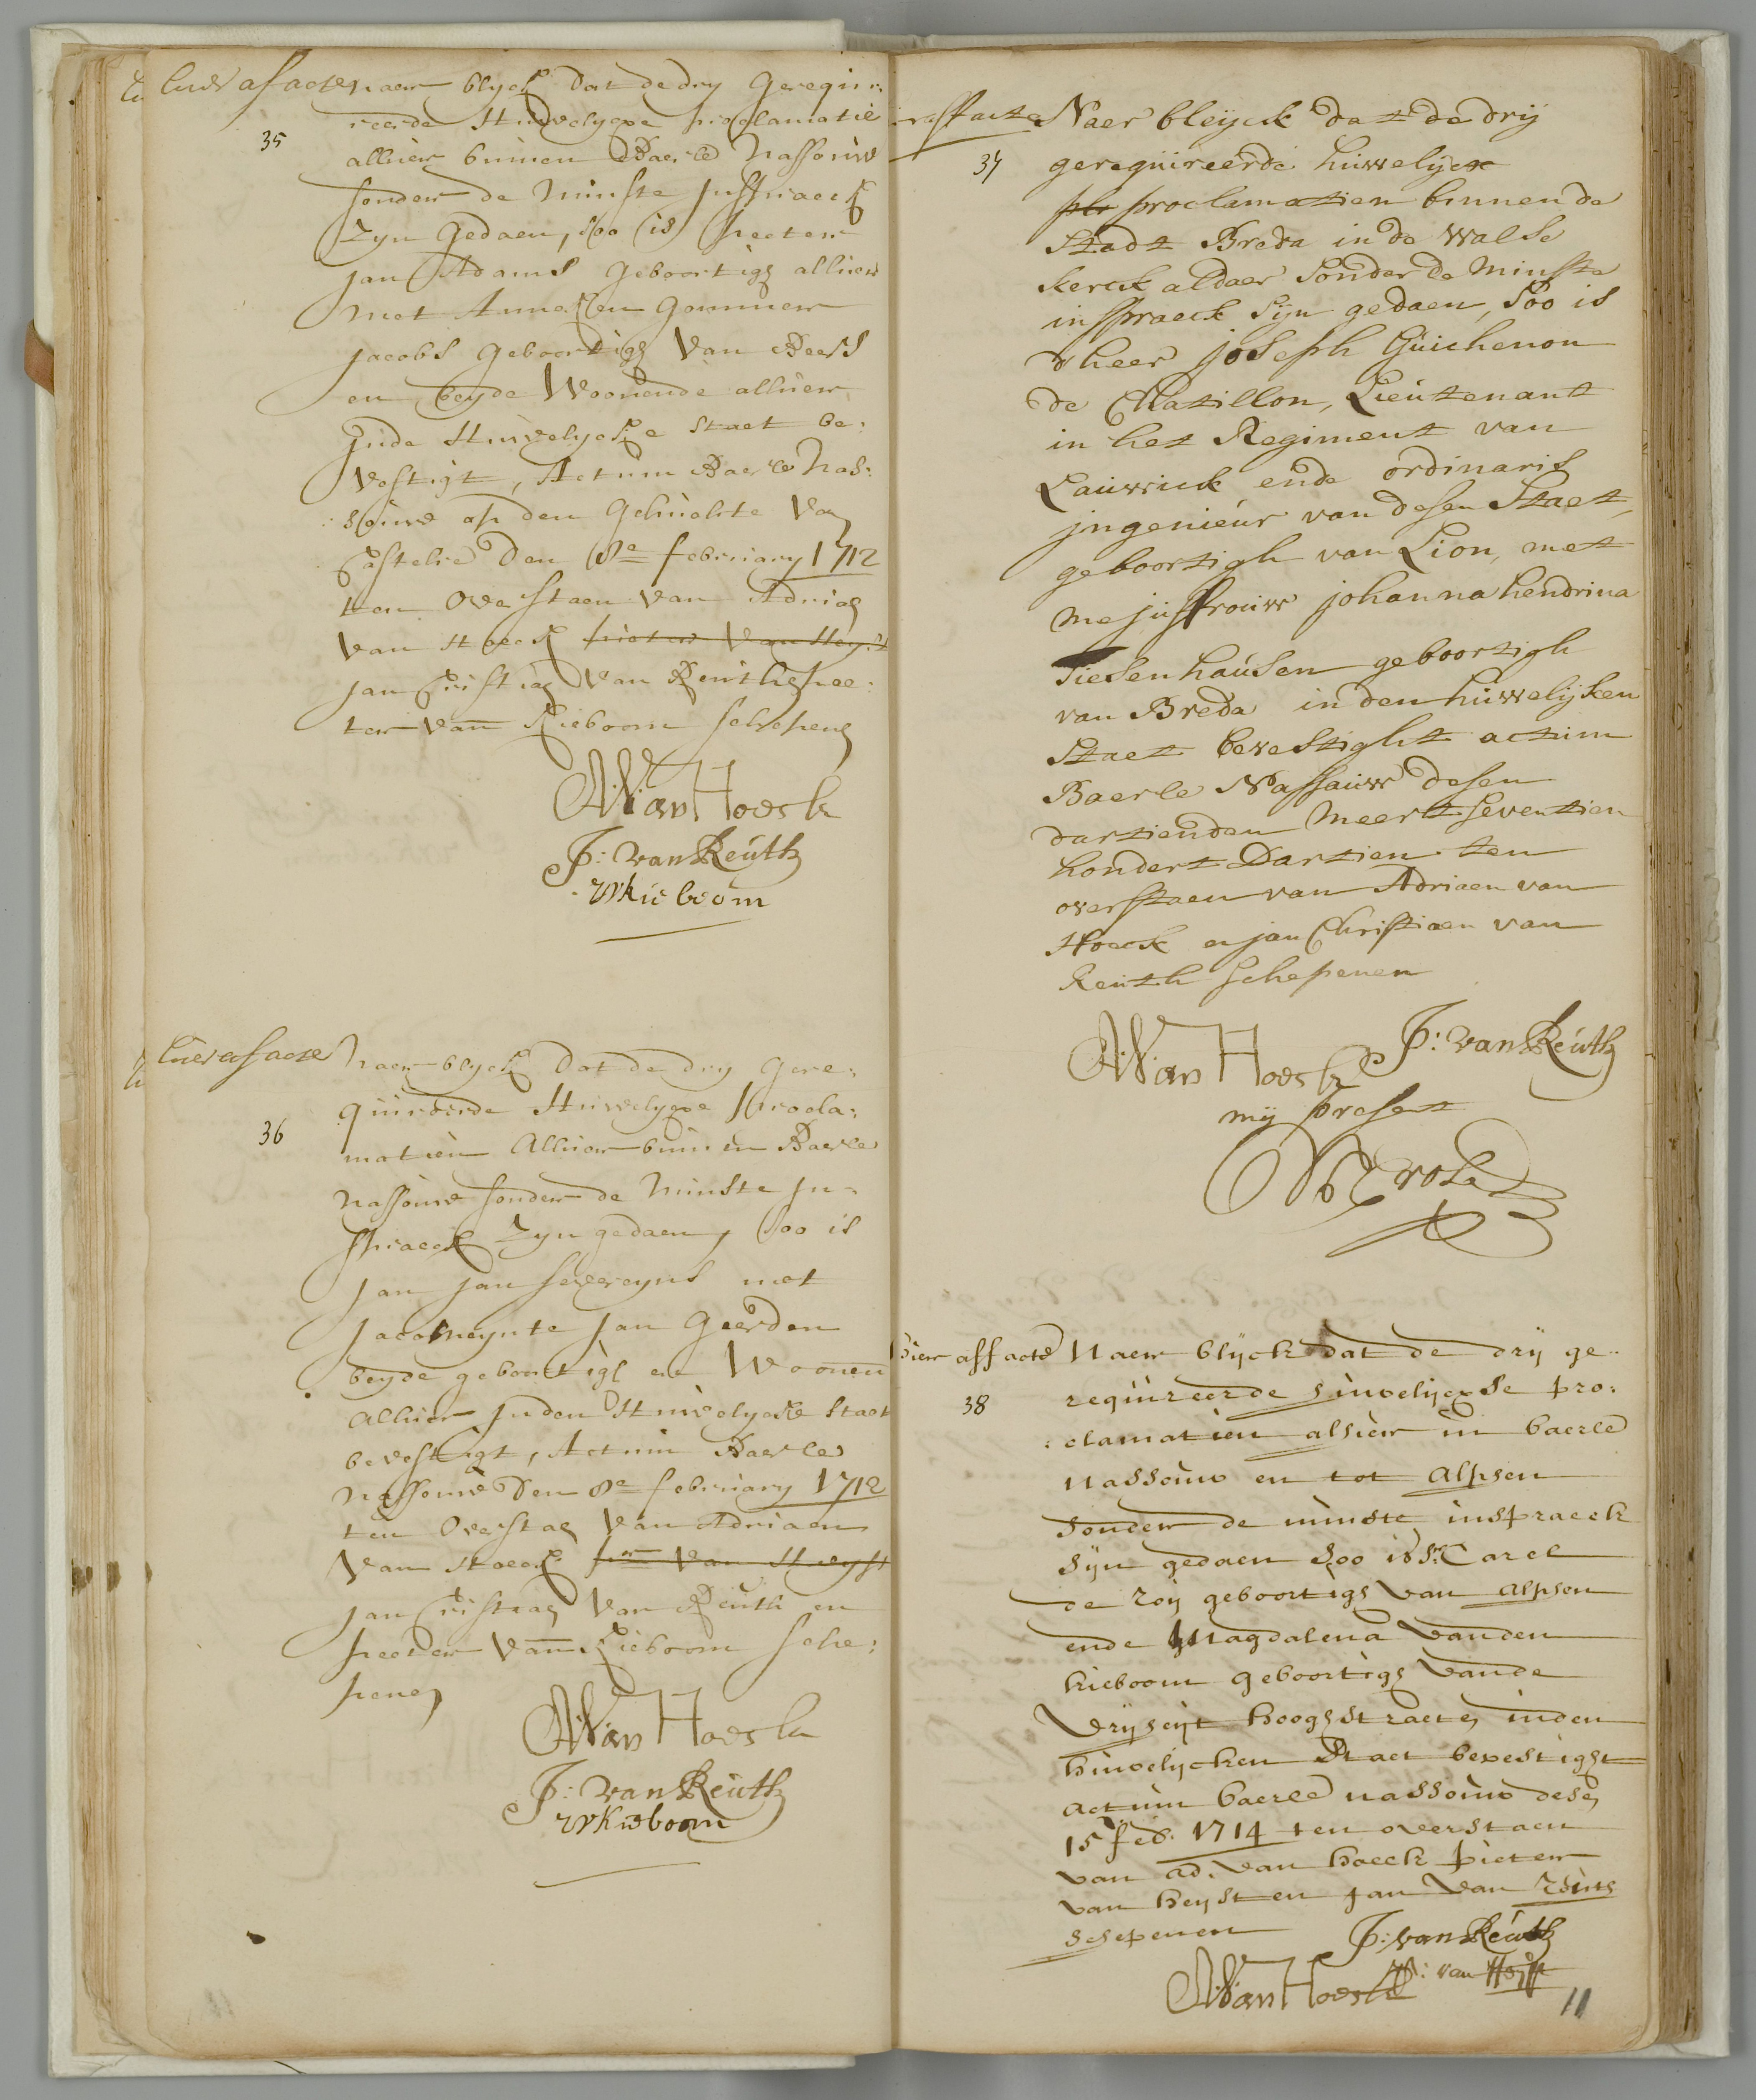 hier af acte naer blyck dat de dry gerequi:
35 reerde Huwelycxe proclamatie
alhier binnen Baerle Nassouw
sonder de minste Inspraeck
zyn gedaen, soo is Peeter
Jan Adams geboortigh alhier
met Anneken
Jacobs geboortigh van Beers
en beyde Woonende alhier
Jnde Huwelycke staet be:
vestigt, Actum Baerle Nas:
souw op den Gehuchte van
Castelre den 8e february 1712
ten overstaen van Adriaen
van Hoeck pieter van Heyst
Jan Cristiaen van Reuth Pee:
ter van Kieboom schepenen
AV:van Hoeck
J: van Reuth
PvKieboom
hier af acte naer blyck dat de dry gere:
36 quireerde Huwelycxe procla:
matien alhier binnen Baerle
Nassouw sonder de minste In:
spraeck zyn gedaen, soo is
Jan Jan Severeyns met
Jacomeynte Jan Geerden
beyde geboortigh en Woonen
alhier Jnden Huwelycke staet
bevestigt, Actum Baerle
Nassouw den 8e february 1712
ten overstaen van Adriaen
van Hoeck pr van Heyst
Jan Cristiaen van Reuth en
peeter van Kieboom sche:
penen
AV:van Hoeck
J: van Reuth
PvKieboom
affacte Naer bleijck dat de drij
37 gerequireerde huwelijcxe
plo proclamatien binnen de
Stadt Breda in de Walse
kerck aldaer sonder de minste
inspraeck sijn gedaen, soo is
dheer joseph Guichenon
de Chatillon, Lieutenant
in het Regiment van
Lauwick ende ordinaris
jngenieur van desen Staet,
geboortigh van Lion, met
mejuffrouw johanna hendrina
Tiesenhausen geboortigh
van Breda in den huwelijken
Staet bevestight actum
Baerle Nassauw desen
dartienden Meert seventien
hondert Dartien ten
overstaen van Adriaen van
Hoeck en jan Christiaen van
Reuth schepenen
AV:van Hoeck J: van Reuth
mij present
hier af facte Naer blijck dat de drij ge:
38 requireerde huwelijcxse pro:
clamatien alhier in baerle
nassouw en tot alphen
sonder de minste inspraeck
sijn gedaen soo is Sr. Carel
de roij geboortigh van alphen
ende Magdalena vanden
kieboom geboortigh vande
vrijheijt hooghstraeten inden
huwelijcken Staet bevestight
actum baerle nassouw desen
15 feb. 1714 ten overstaen
van ad. van hoeck pieter
van heijst en jan van Reuth
schepenen J: van Reuth
AV:van Hoeck P: van Heijst
11